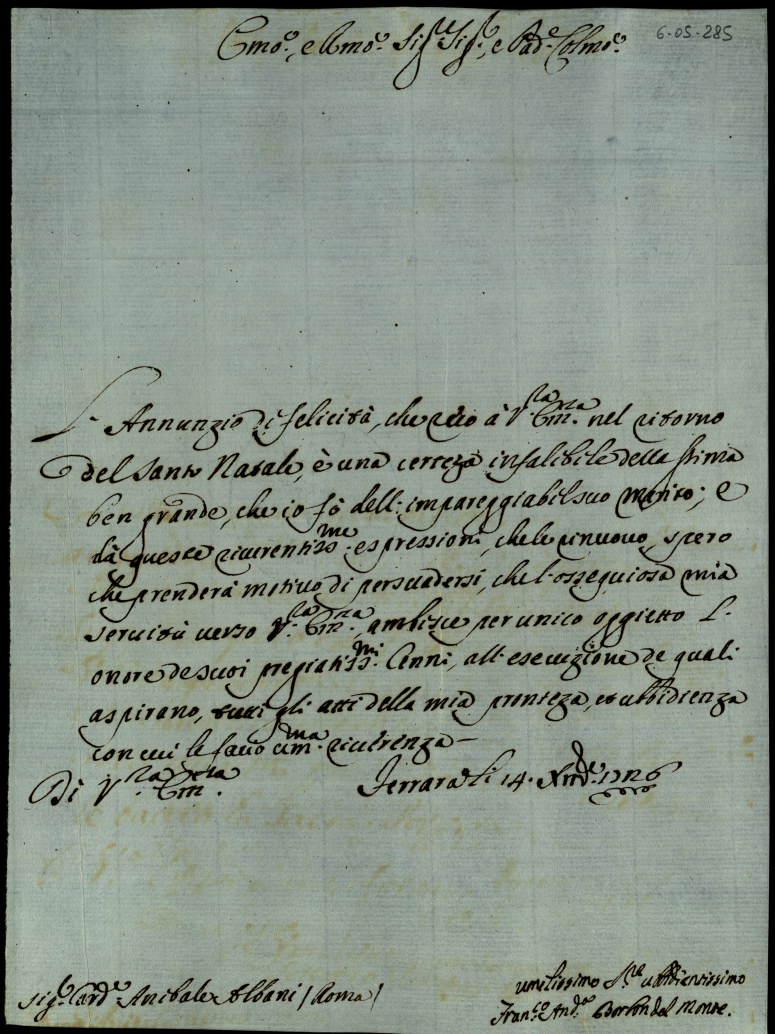 6-05-285
Emo.e, e Rmo.e Sig.re Sig.re, e Pad.e Colmo.e
L'Annunzio di felicità, che reco à V.ra Em.za nel ritorno
del Santo Natale, è una certeza infalibile della stima
ben grande, che io fò dell'impareggiabil suo merito; e
dà queste riverentiss.me espressioni, che le rinuovo, spero
che prenderà motivo di persuadersi, che l'osseguiosa mia
servitù verso V.ra Em.za, ambisce per unico oggietto L'
onore de suoi pregiatiss.mi Cenni, all'esecuizione de quali
aspirano, tutti gli atti della mia pronteza, et ubbidienza
con cui le faccio um.ma riverenza—
Di V.ra Em.za Ferrara li 14. Xmb.e 1726
Sig.r Card.e Anibale Albani / Roma /
umilissimo S.re ubbidientissimo
Fran.co And.a Borbon del Monte.